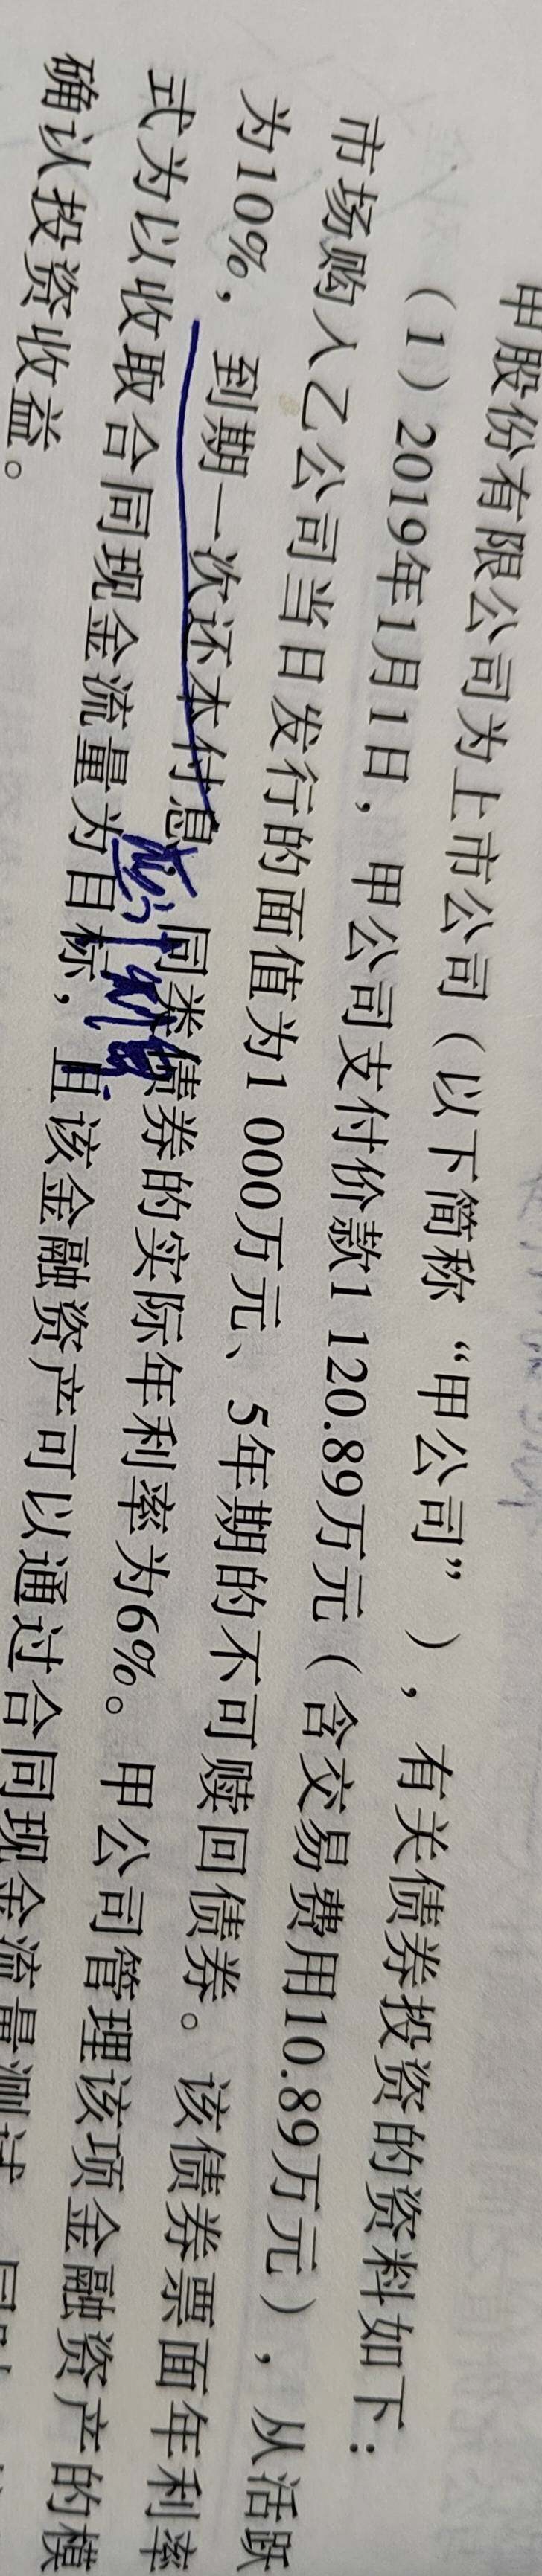 甲股份有限公司为上市公司（以下简称“甲公司”），有关债券投资的资料如下：
（1）2019年1月1日，甲公司支付价款1 120.89万元（含交易费用10.89万元），从活跃
市场购入乙公司当日发行的面值为1 000万元、5年期的不可赎回债券。该债券票面年利率
为10%，到期一次还本付息，同类债券的实际年利率为6%。甲公司管理该项金融资产的模
式为以收取合同现金流量为目标，且该金融资产可以通过合同现金流量测试
确认投资收益。